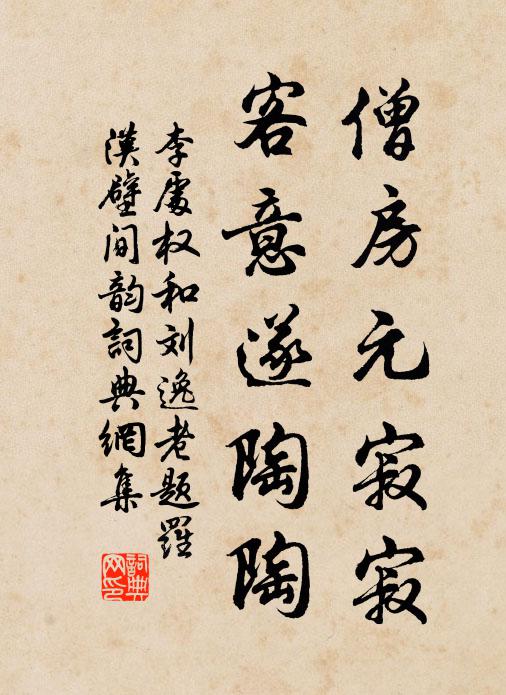 僧房元寂寂
客意遂陶陶
李處权和刘逸老题羅
漢壁间韵詞典網集
詞典网印